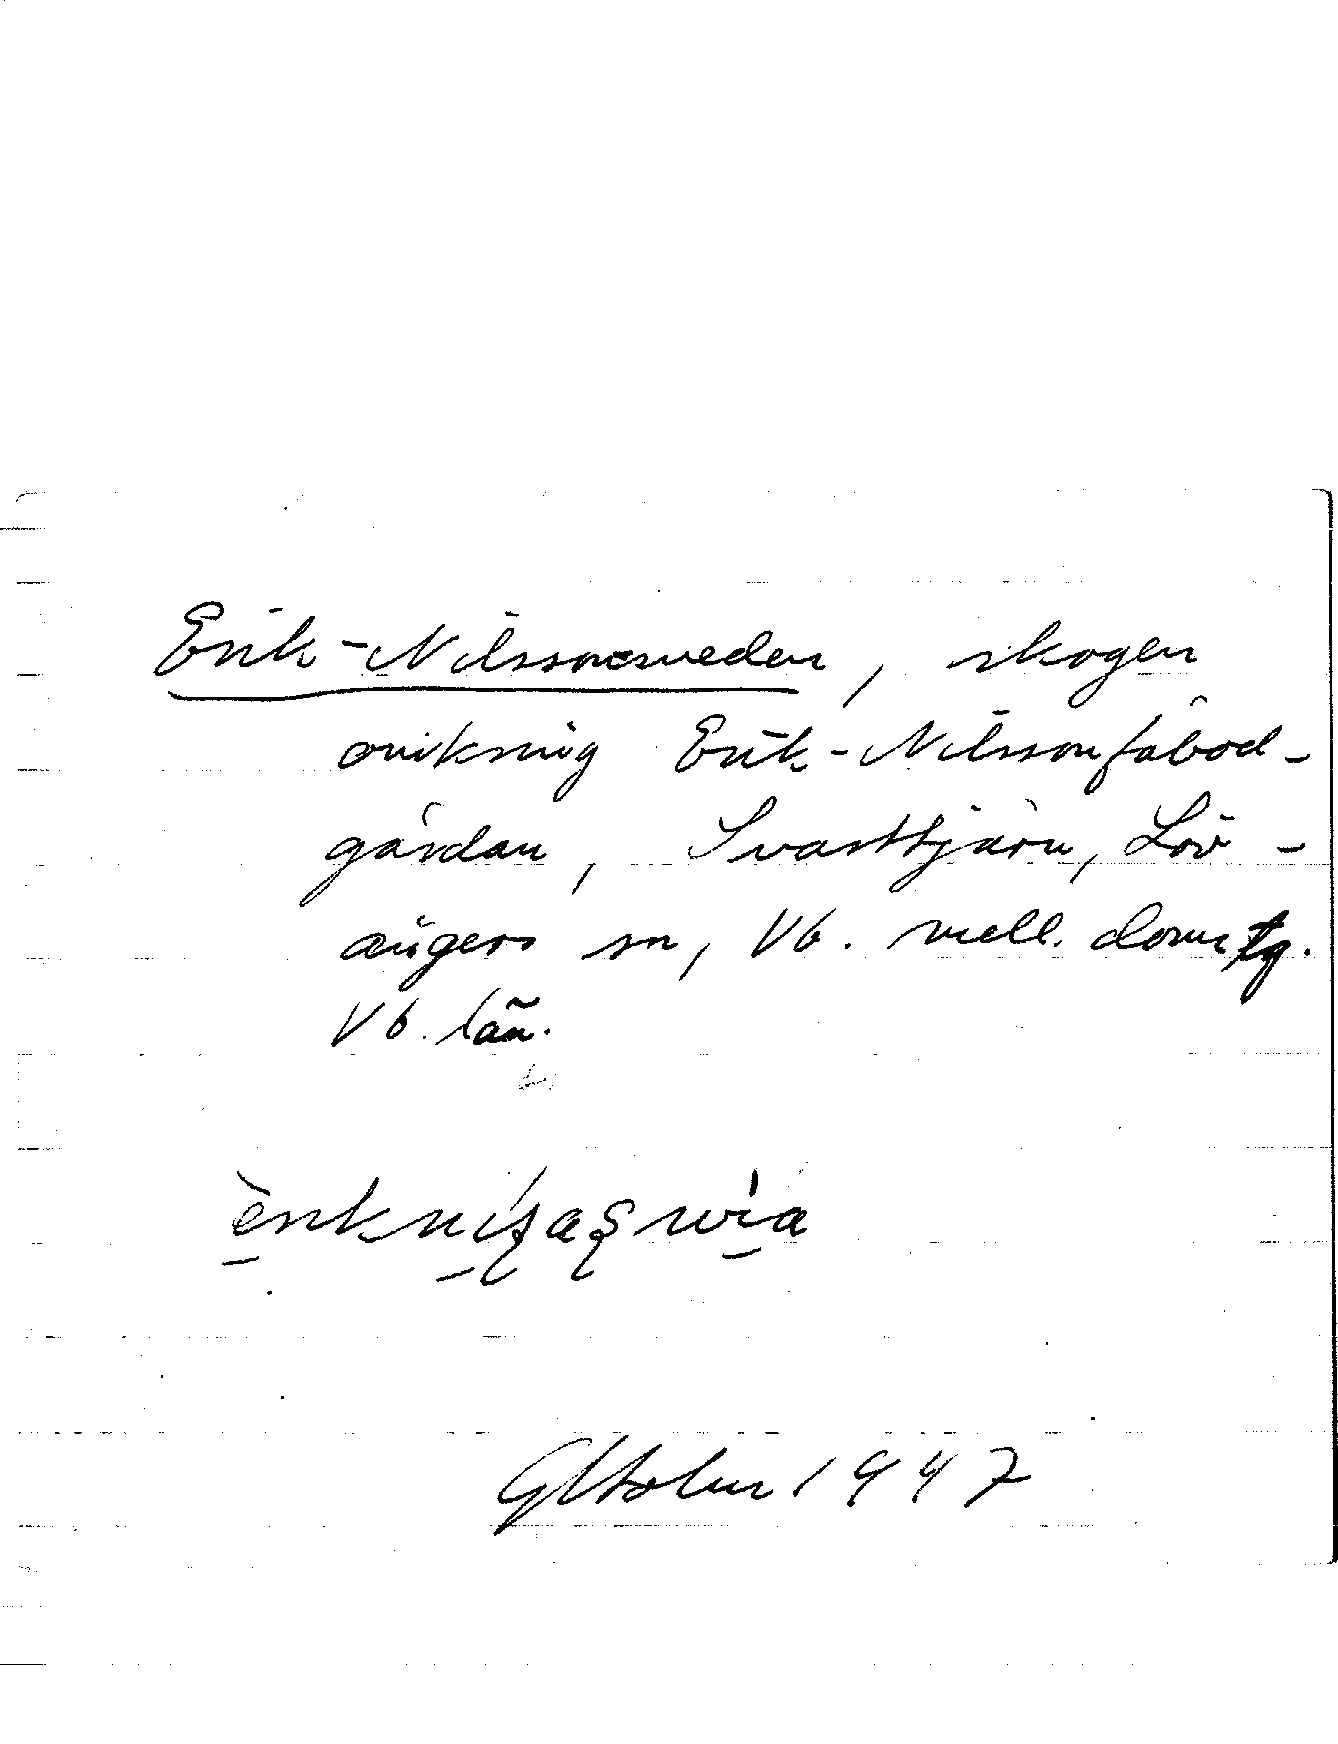 Erik-Nilssonsveden, skogen
omkring Erik-Nilssonfäbod-
gårdan, Svarttjärn, Löv-
ångers sn, Vb. mell. domstg.
Vb. län.
1947